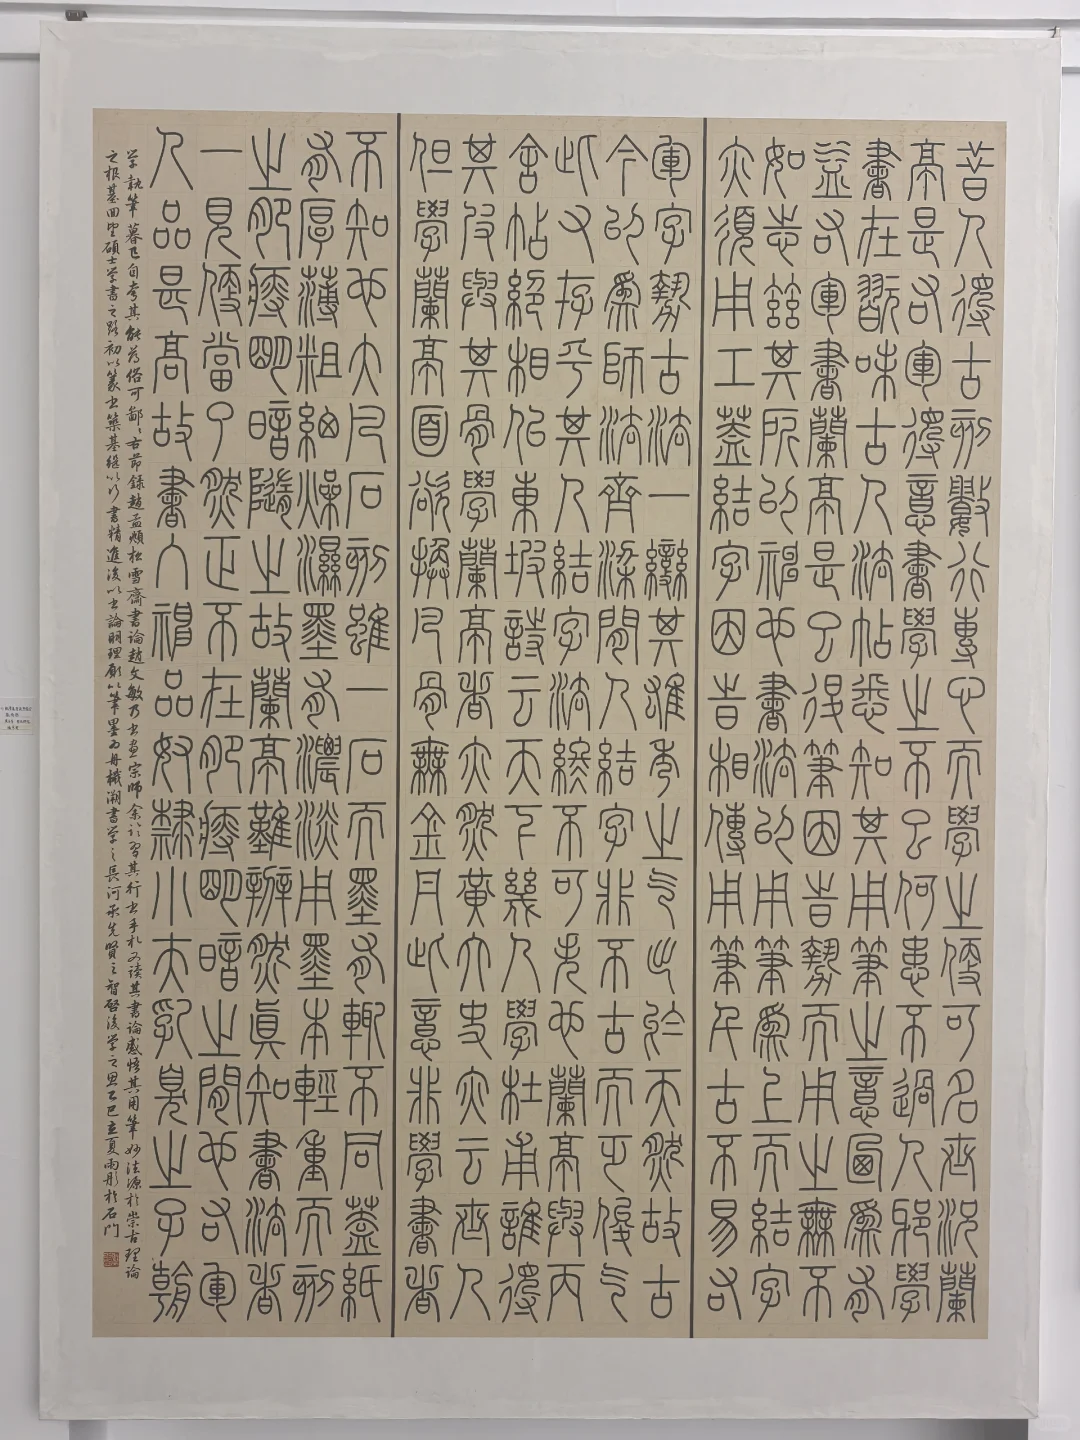 昔人得古刻數行專心而學之便可名世況蘭
亭是右軍得意書學之不已何患不過人邪學
書在翫味古人法帖悉知其用筆之意迺爲有
益右軍書蘭亭是已退筆因其勢而用之無不
如志茲其所以神也書法以用筆爲上而結字
亦須用工蓋結字因時相傳用筆千古不易右
軍字勢古法一變其雄秀之氣出於天然故古
今以爲師法齊梁間人結字非不古而乏俊氣
此又存乎其人結字法終不可失也蘭亭與丙
舍帖絕相似東坡詩云天下幾人學杜甫誰得
其皮與其骨學蘭亭者亦然黃太史亦云世人
但學蘭亭面欲換凡骨無金丹此意非學書者
不知也大凡石刻雖一石而墨有輒不同蓋紙
有厚薄粗細燥濕墨有濃淡用墨本輕重而刻
之肥瘦明暗隨之故蘭亭難辨然眞知書法者
一見便當了然正不在肥瘦明暗之間也右軍
人品甚高故書入神品奴隸小夫乳臭之子朝
学執筆暮已自夸其能薄俗可鄙鄙右節錄趙孟頫松雪齋書論趙文敏乃书畫宗師余亦習其行书手札又读其書論感悟其用筆妙法源於崇古理論
之根基回望碩士学書之路初以篆书築基繼以行書精進後以书論明理願以筆墨为舟楫溯書学之長河承先賢之智啓後学之思乙巳立夏雨彤於石门